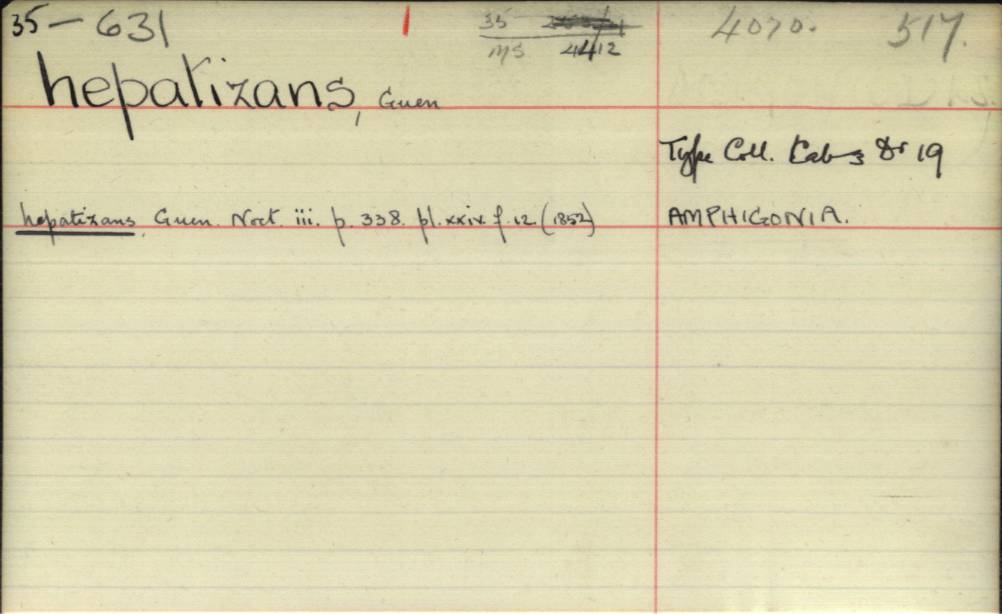 35-631
35
MS 4412
4070. 517.
hepatizans, Guen
Type Coll. Cab 3 Dr 19
hepatizans, Guen. Noct. iii. p. 338. pl. xxiv. f. 12. (1852)
AMPHIGONIA.